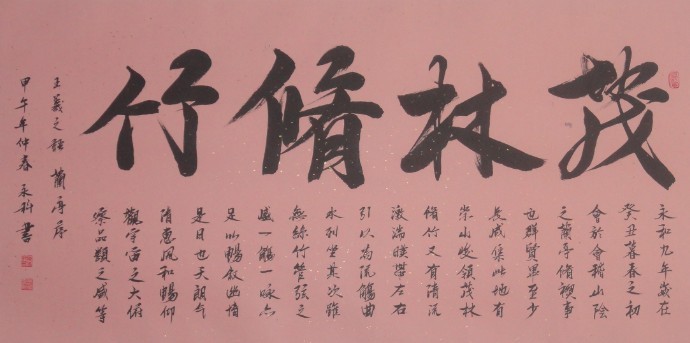 茂林脩竹
永和九年歲在
癸丑暮春之初
會於會稽山陰
之蘭亭脩禊事
也群賢畢至少
長咸集此地有
崇山峻領茂林
脩竹又有清流
激湍暎帶左右
引以為流觴曲
水列坐其次雖
無絲竹管弦之
盛一觴一詠亦
足以暢敘幽情
是日也天朗氣
清惠風和暢仰
觀宇宙之大俯
察品類之盛等
王羲之語 蘭亭序
甲午年仲春 永科書